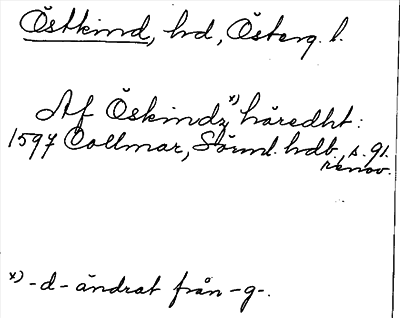 Östkind, hd, Österg. l.
Af Öskindz x) häredht:
1597 Collmar, Sörml. hdb. s. 91.
renov.
x) -d- ändrat från -g-.